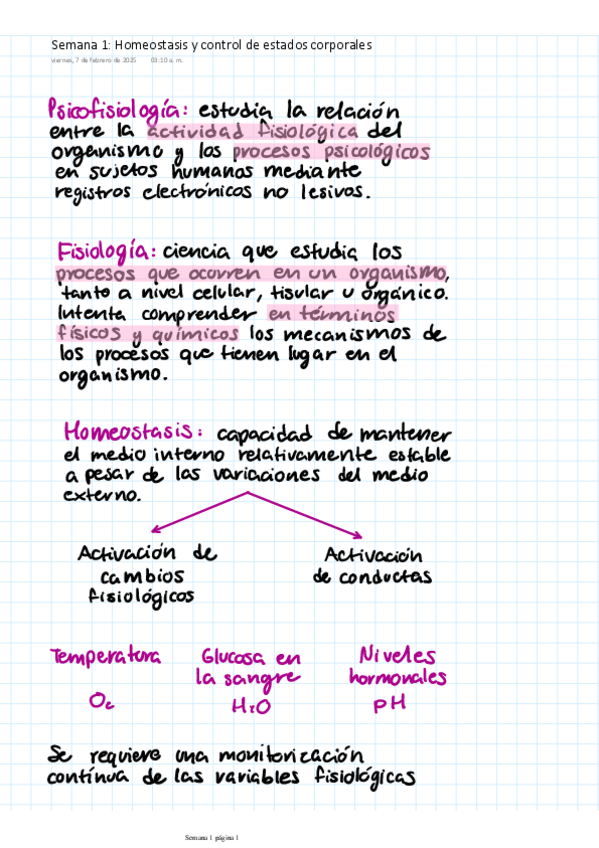 Semana 1: Homeostasis y control de estados corporales
viernes, 7 de febrero de 2025 03:10 a. m.
Psicofisiología: estudia la relación
entre la actividad fisiológica del
organismo y los procesos psicológicos
en sujetos humanos mediante
registros electrónicos no lesivos.
Fisiología: ciencia que estudia los
procesos que ocurren en un organismo,
tanto a nivel celular, tisular u orgánico.
Intenta comprender en términos
físicos y químicos los mecanismos de
los procesos que tienen lugar en el
organismo.
Homeostasis: capacidad de mantener
el medio interno relativamente estable
a pesar de las variaciones del medio
externo.
Activación de
cambios
fisiológicos
Activación
de conductas
Temperatura
Glucosa en
la sangre
Niveles
hormonales
O2
H2O
pH
Se requiere una monitorización
contínua de las variables fisiológicas
Semana 1 página 1